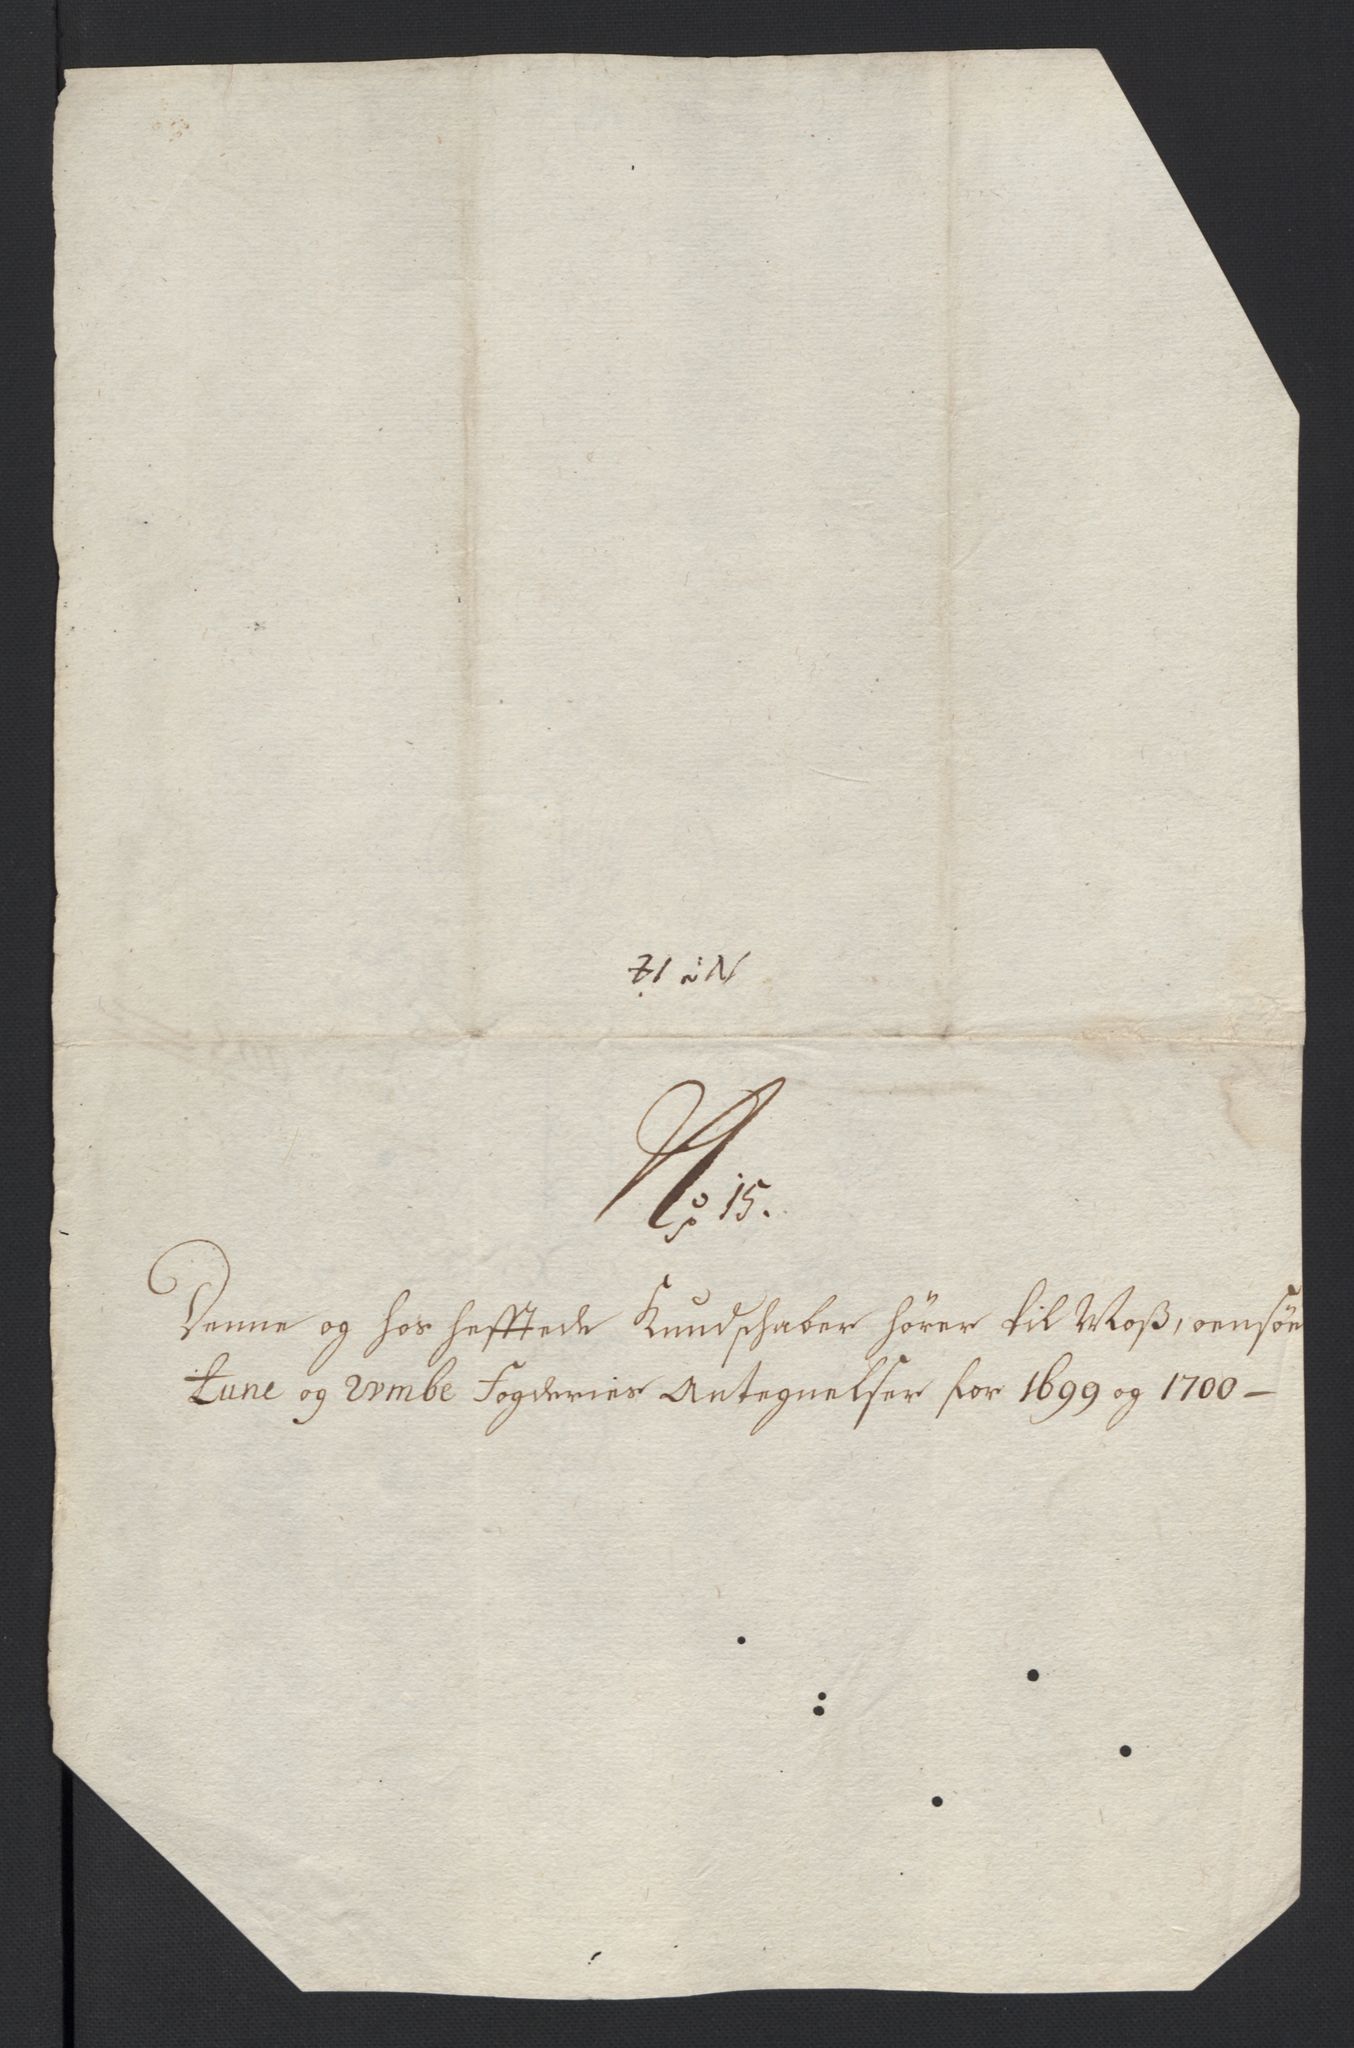 No 12
No 15.
Denne og hos hefftede Kundschaber hører til Moß, oensøe
tune og Vembe Fogderies Antegnelser for 1699 og 1700 —